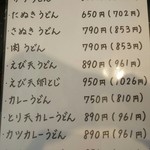 たぬきうどん 650円(702円)
きぬきうどん 790円(853円)
肉うどん 790円(853円)
えび天うどん 890円(961円)
えび天、明とじ 950円(1026円)
カレーうどん 750円(810円)
とり天カレーうどん 890円(961円)
カツカレーうどん 890円(961円)